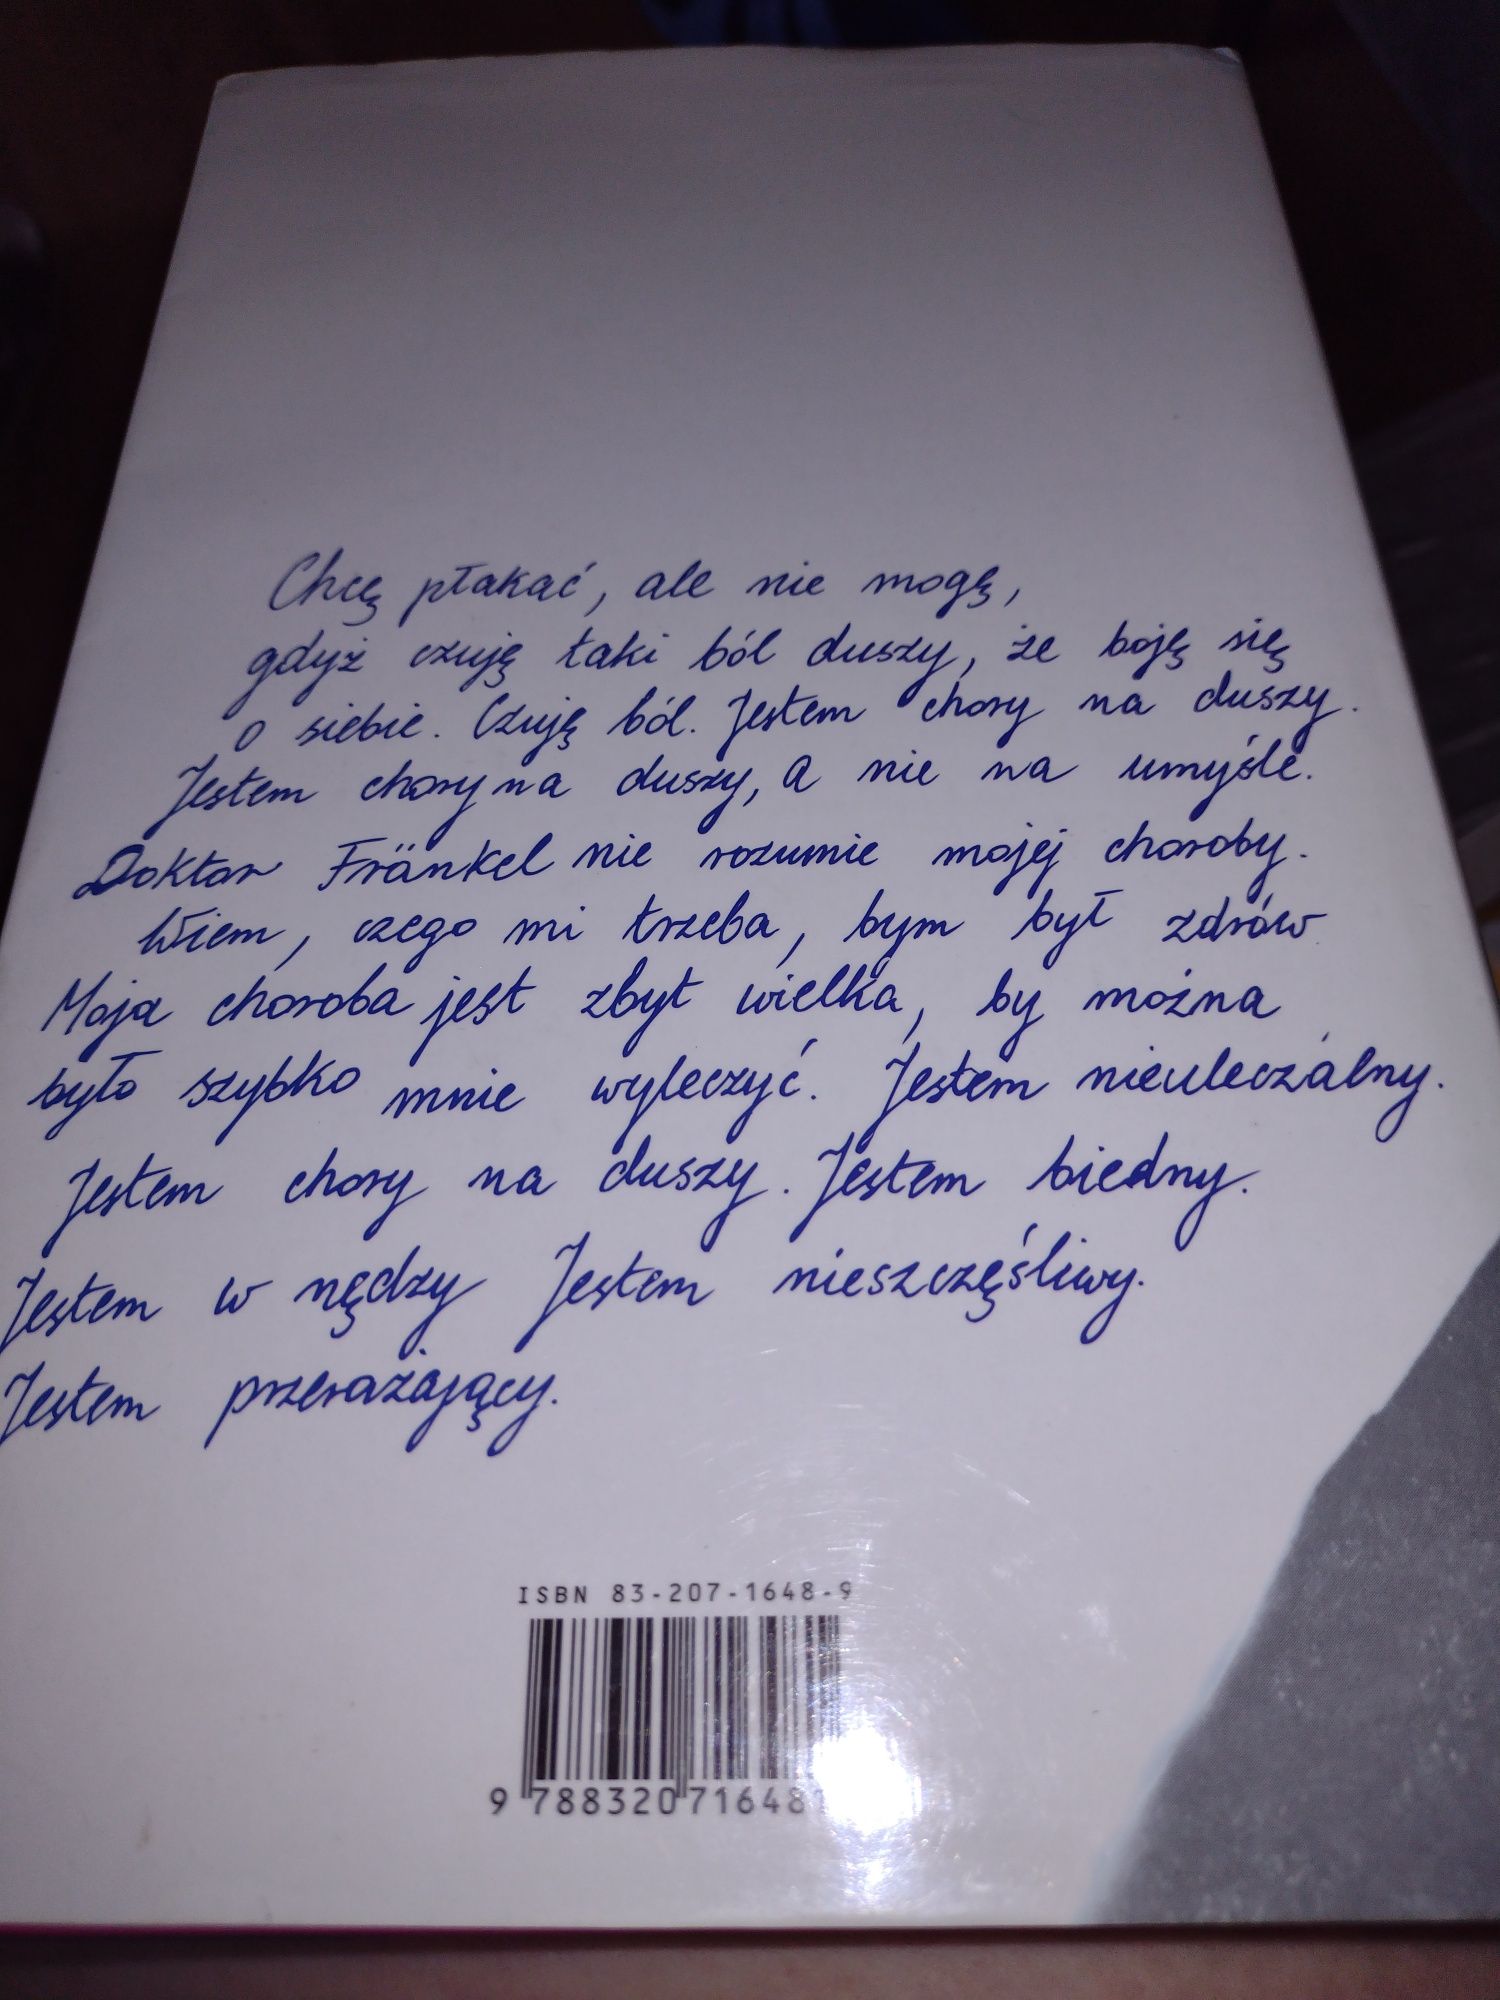 Chcę płakać, ale nie mogę,
gdyż czuję taki ból duszy, że boję się
o siebie. Czuję ból. Jestem chory na duszy.
Jestem chory na duszy, a nie na umyśle.
Doktor Fränkel nie rozumie mojej choroby.
Wiem, czego mi trzeba, bym był zdrów
Moja choroba jest zbyt wielka, by można
było szybko mnie wyleczyć. Jestem nieuleczalny.
Jestem chory na duszy. Jestem biedny.
Jestem w nędzy Jestem nieszczęśliwy.
Jestem przerażający.
ISBN 83-207-1648-9
9 788320 71648